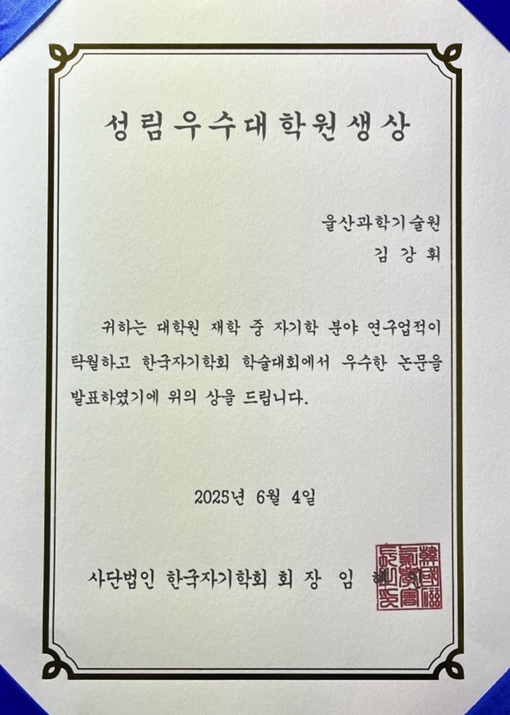 성림우수대학원생상
울산과학기술원
김 강 휘
귀하는 대학원 재학 중 자기학 분야 연구업적이
탁월하고 한국자기학회 학술대회에서 우수한 논문을
발표하였기에 위의 상을 드립니다.
2025년 6월 4일
사단법인 한국자기학회 회 장 임